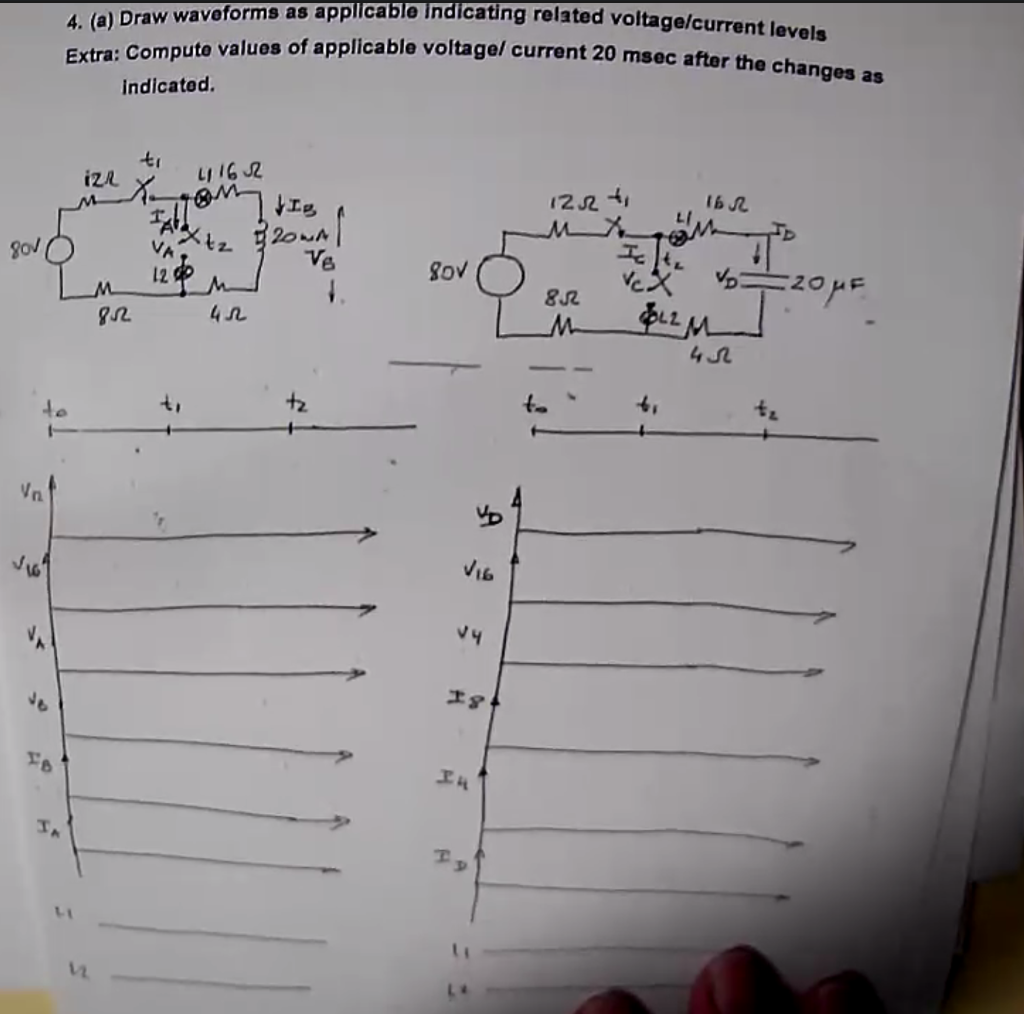 4. (a) Draw waveforms as applicable indicating related voltage/current levels
Extra: Compute values of applicable voltage/ current 20 msec after the changes as
indicated.
12Ω t1 L1 16Ω
80V IA VA t2 ↓IB 20mH VB
L2
8Ω 4Ω
12Ω t1 L1 16Ω ID
80V IC VC t2 VD 20μF
8Ω L2
4Ω
t0 t1 t2
t0 t1 t2
V12
V16
VA
VB
IB
IA
L1
L2
VD
V16
V4
I8
I4
ID
L1